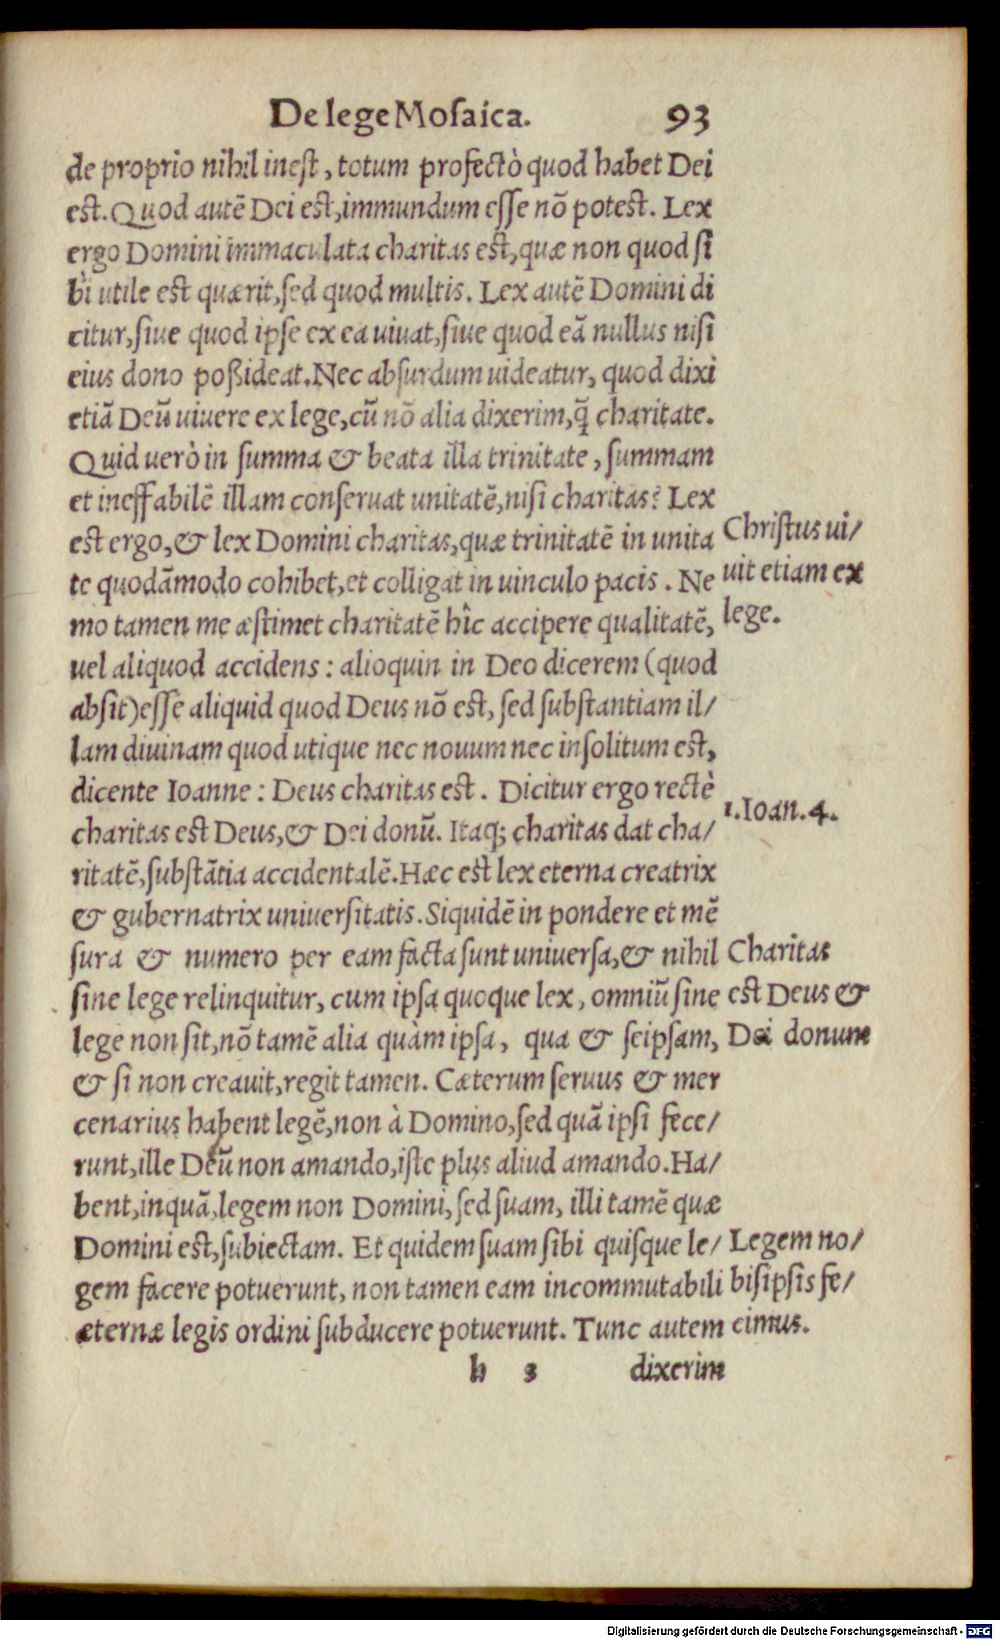 De lege Mosaica. 93
de proprio nihil inest, totum profectò quod habet Dei
est. Quod autẽ Dei est, immundum esse nõ potest. Lex
ergo Domini immaculata charitas est, quæ non quod si
bi utile est quærit, sed quod multis. Lex autẽ Domini di
citur, siue quod ipse ex ea uiuat, siue quod eã nullus nisi
eius dono poßideat. Nec absurdum uideatur, quod dixi
etiã Deũ uiuere ex lege, cũ nõ alia dixerim, q̃ charitate.
Quid uerò in summa & beata illa trinitate, summam
et ineffabilẽ illam conseruat unitatẽ, nisi charitas? Lex
est ergo, & lex Domini charitas, quæ trinitatẽ in unita
te quodãmodo cohibet, et colligat in uinculo pacis. Ne
mo tamen me æstimet charitatẽ hîc accipere qualitatẽ,
uel aliquod accidens: alioquin in Deo dicerem (quod
absit) esse aliquid quod Deus nõ est, sed substantiam il/
lam diuinam quod utique nec nouum nec insolitum est,
dicente Ioanne: Deus charitas est. Dicitur ergo rectè
charitas est Deus, & Dei donũ. Itaq; charitas dat cha/
ritatẽ, substãtia accidentalẽ. Hæc est lex eterna creatrix
& gubernatrix uniuersitatis. Siquidẽ in pondere et mẽ
sura & numero per eam facta sunt uniuersa, & nihil
sine lege relinquitur, cum ipsa quoque lex, omniũ sine
lege non sit, nõ tamẽ alia quàm ipsa, qua & seipsam,
& si non creauit, regit tamen. Cæterum seruus & mer
cenarius habent legẽ, non à Domino, sed quã ipsi fece/
runt, ille Deũ non amando, iste plus aliud amando. Ha/
bent, inquã, legem non Domini, sed suam, illi tamẽ quæ
Domini est, subiectam. Et quidem suam sibi quisque le/
gem facere potuerunt, non tamen eam incommutabili
æternæ legis ordini subducere potuerunt. Tunc autem
h 3 dixerim
Christus ui/
uit etiam ex
lege.
1. Ioan. 4.
Charitas
est Deus &
Dei donum
Legem no/
bis ipsis fe/
cimus.
Digitalisierung gefördert durch die Deutsche Forschungsgemeinschaft - DFG